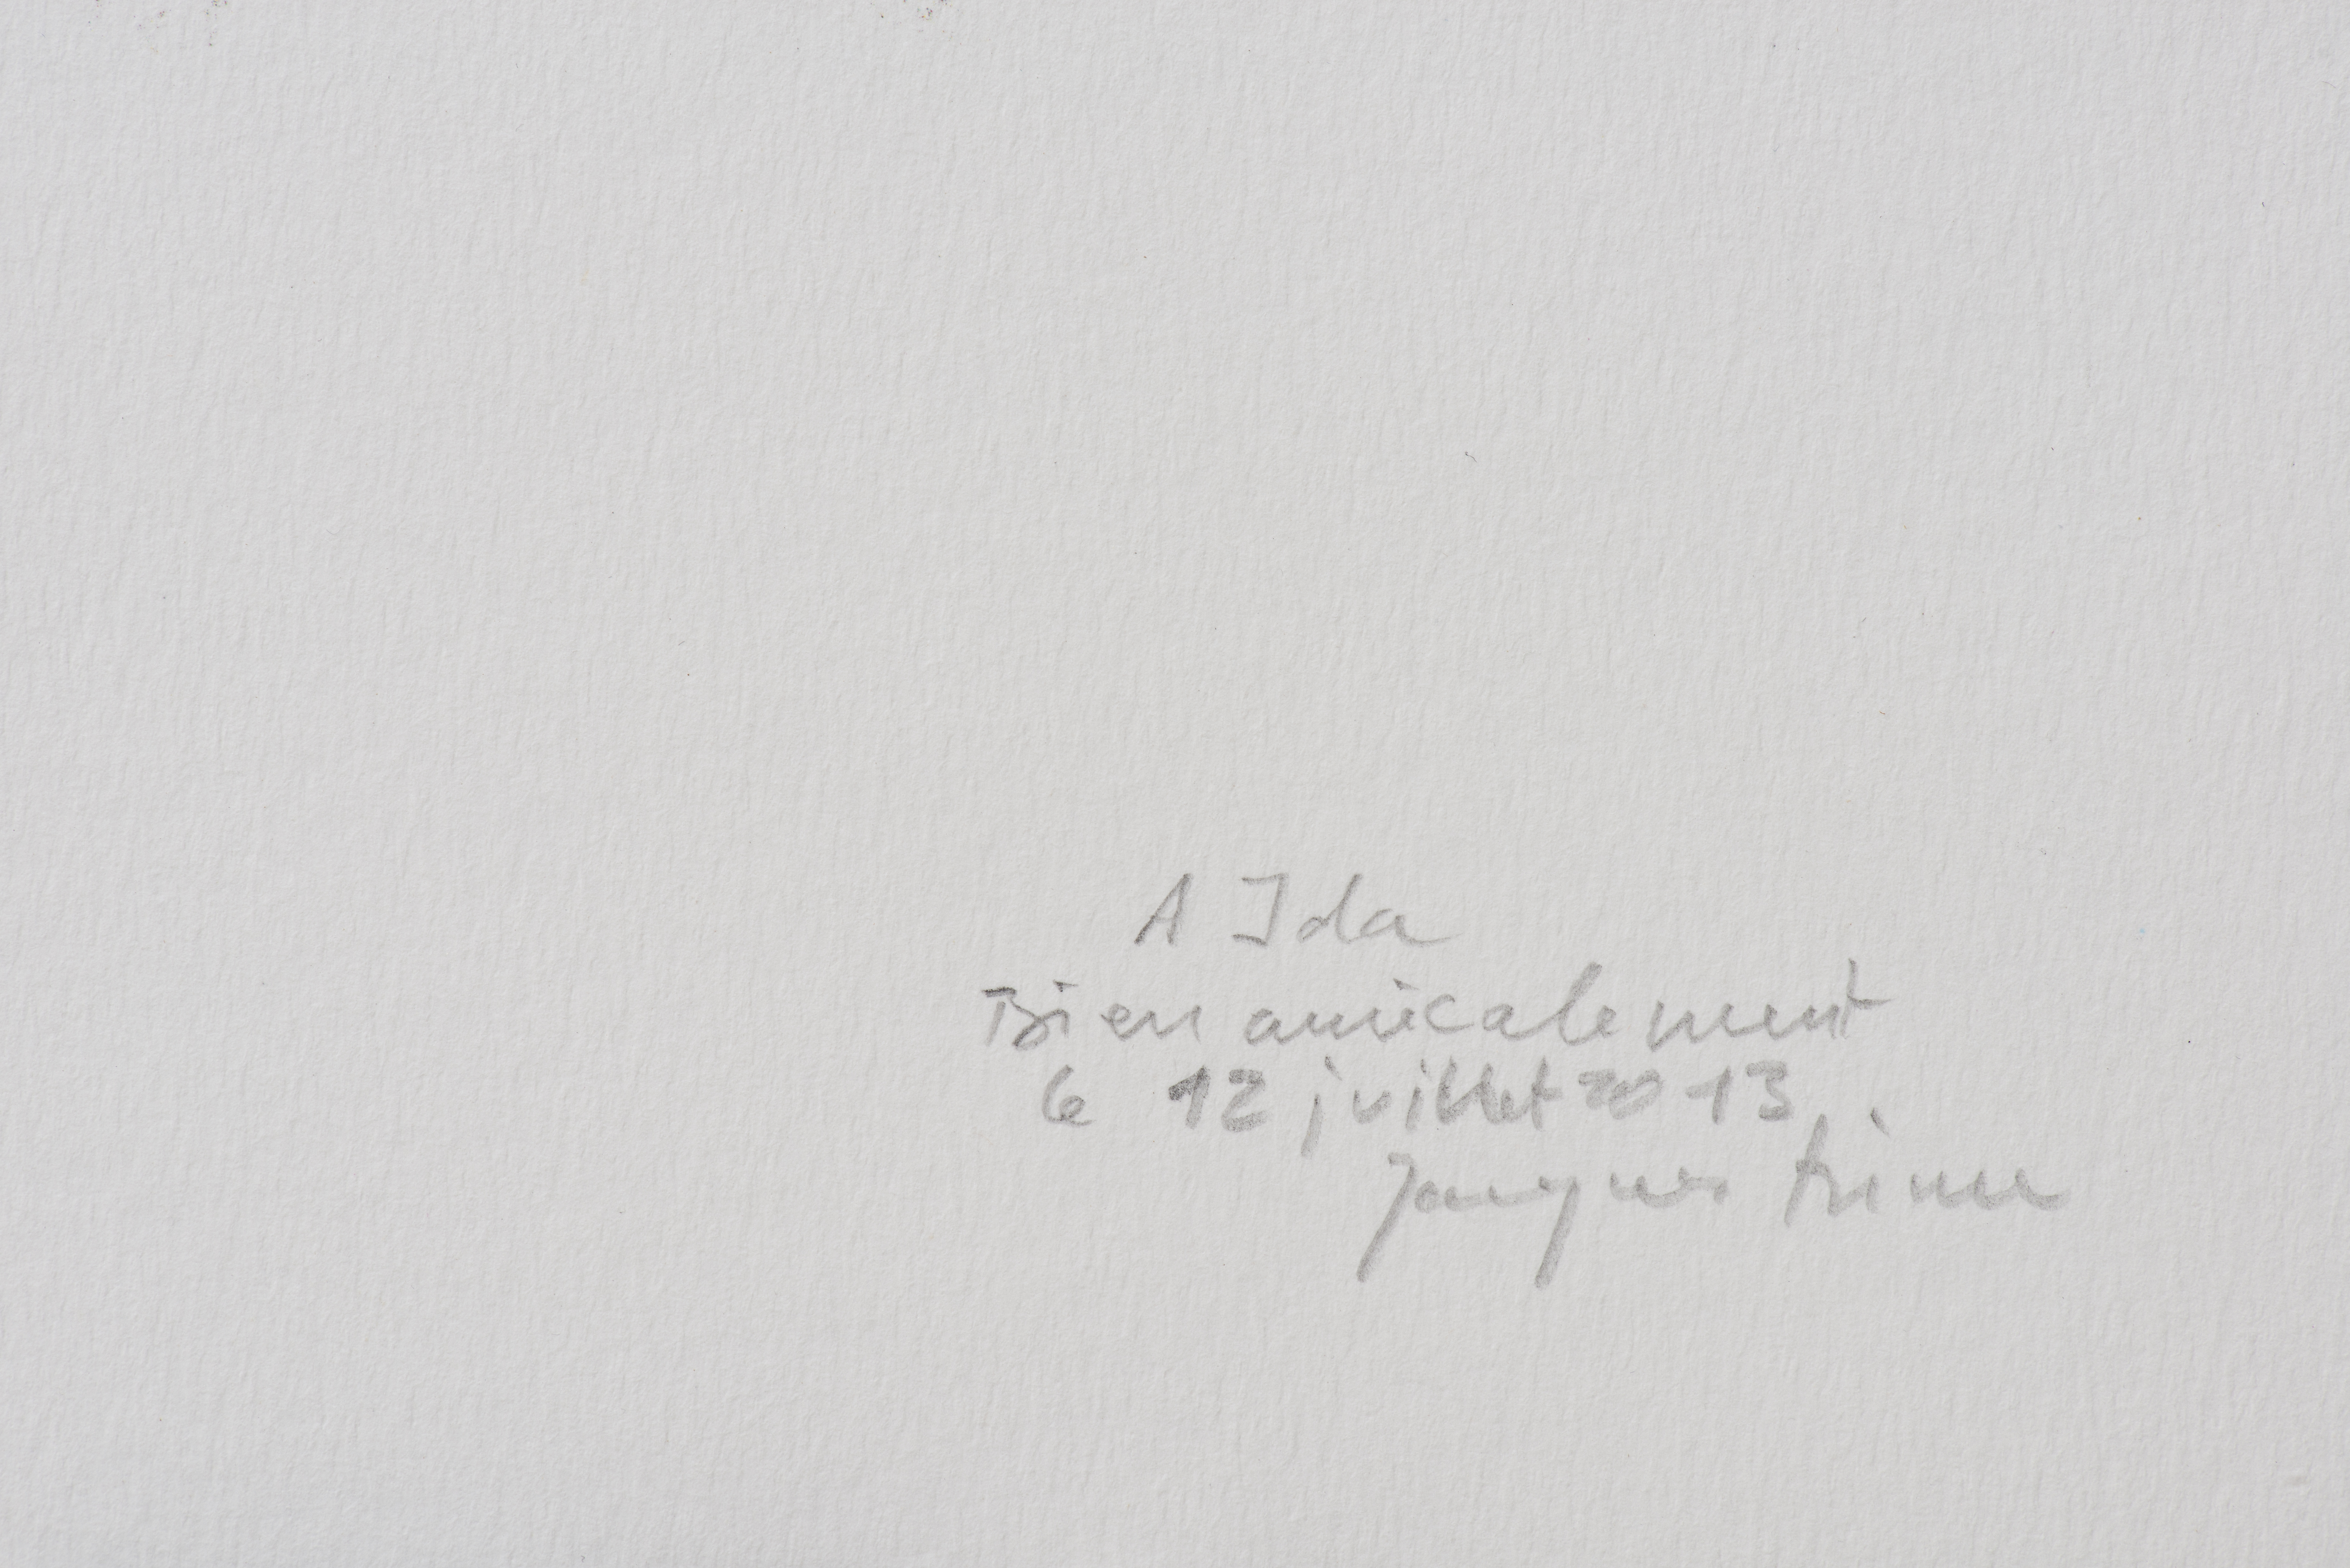 A Ida
Bien amicalement
le 12 juillet 2013
Jacques